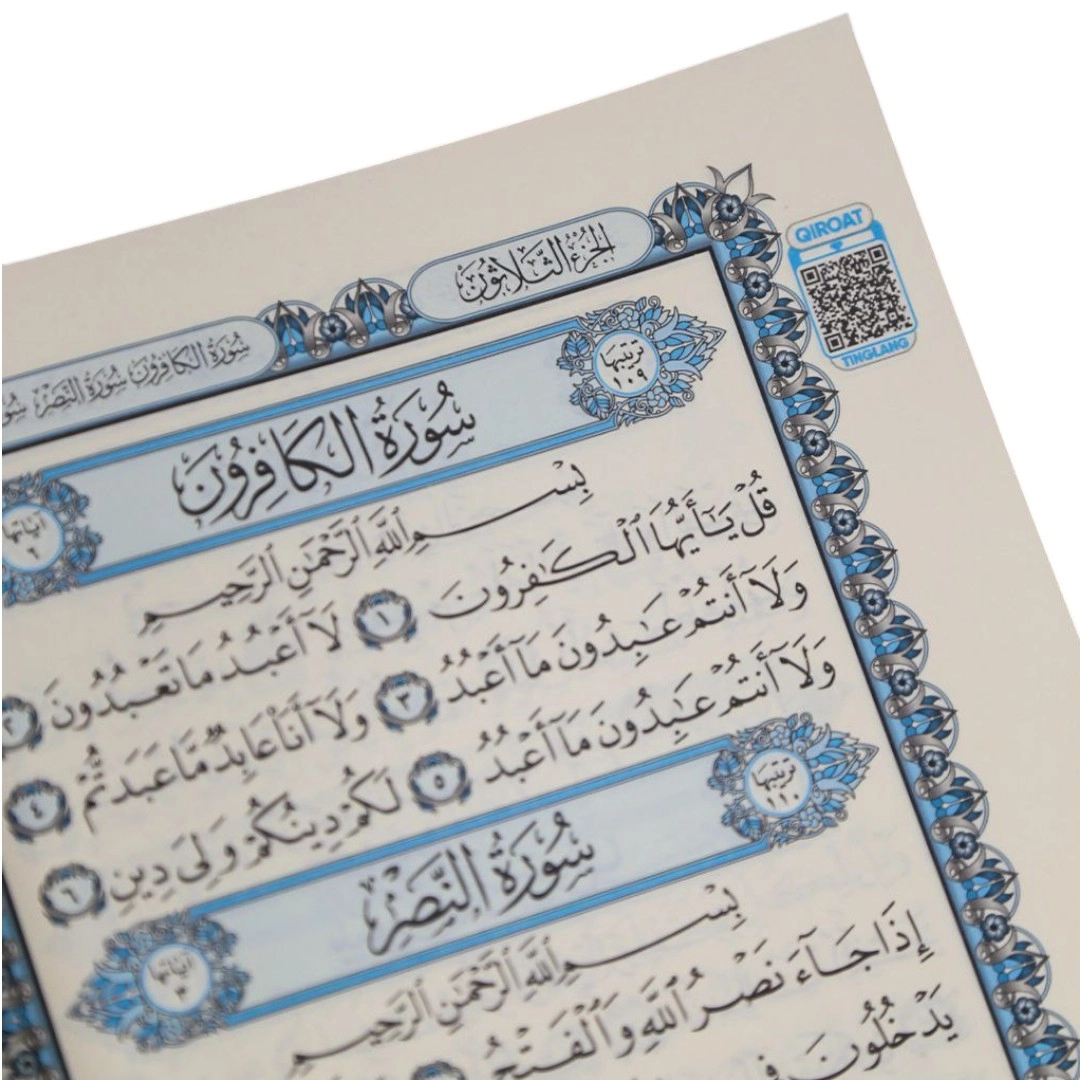 الجُزْءُ الثَّلَاثُونَ
سُورَةُ الكَافِرُونَ سُورَةُ النَّصْرِ
QIROAT
TINGLANG
ترتيبها ١٠٩
سُورَةُ الكَافِرُونَ
آياتها ٦
بِسْمِ ٱللَّهِ ٱلرَّحْمَٰنِ ٱلرَّحِيمِ
قُلْ يَـٰٓأَيُّهَا ٱلْكَـٰفِرُونَ ١ لَآ أَعْبُدُ مَا تَعْبُدُونَ ٢
وَلَآ أَنتُمْ عَـٰبِدُونَ مَآ أَعْبُدُ ٣ وَلَآ أَنَا۠ عَابِدٌ مَّا عَبَدتُّمْ ٤
وَلَآ أَنتُمْ عَـٰبِدُونَ مَآ أَعْبُدُ ٥ لَكُمْ دِينُكُمْ وَلِىَ دِينِ ٦
ترتيبها ١١٠
سُورَةُ النَّصْرِ
آياتها ٣
بِسْمِ ٱللَّهِ ٱلرَّحْمَٰنِ ٱلرَّحِيمِ
إِذَا جَآءَ نَصْرُ ٱللَّهِ وَٱلْفَتْحُ
يَدْخُلُونَ